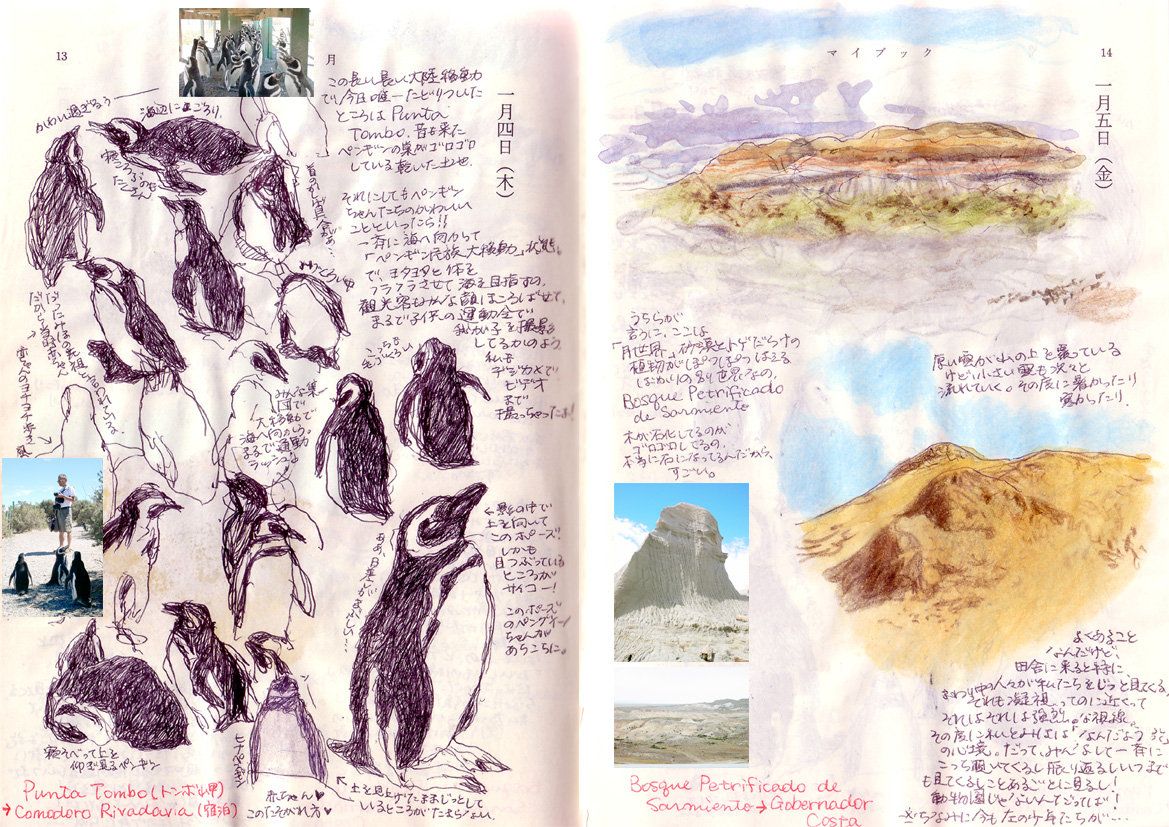 13
月
一月四日(木)
かわい過ぎるぅ
海辺にまごろり。
この長い長い大陸移動
で、今日唯一たどりつした
ところは Punta
Tombo。昔も来た
ペンギンの巣がゴロゴロ
している乾いた土地。
それにしてもペンギン
ちゃんたちのかわいい
ことといったら!!
一斉に海へ向かって
「ペンギン民族大移動」状態。
で、ヨタヨタと体を
フラフラさせて海を目指すの。
観光客もみんな顔ほころばせて、
まるで子供の運動会で
我が子を撮影
してるかのよう。
私も
デジカメで
ビデオ
まで
撮っちゃったよ!
こっちも
みんな集
団で
大移動で
海へ向かう。
まるで通勤
ラッシュ
赤ちゃんのヨチヨチ歩き風
←影の中で
上を向いて
このポーズ!
しかも
目つぶっている
ところが
サイコー!
このポーズ
のペンギン
ちゃんが
あちこちに。
ああ、日差しがまぶしい…
寝そべって上を
仰ぎ見るペンギン
ヒナペンギン
赤ちゃん♥
このたそがれ方♥
上を見上げたままじっとして
いるところがたまらない。
Punta Tombo(トンボ岬)
→Comodoro Rivadavia(宿泊)
マイブック
14
一月五日(金)
うちらが
言うに、ここは
「月世界」。砂漠とトゲだらけの
植物がぽつぽつはえる
ばかりの別世界なの。
Bosque Petrificado
de Sarmiento
木が石化してるのが
ゴロゴロしてるの。
本当に石になってるんだから、
すごい。
厚い雲が私の上を覆っている
けど、小さい雲も次々と
流れていく。その度に暑かったり
寒かったり。
よくあること
なんだけど、
田舎に来ると特に、
まわり中の人々が私たちをじっと見てくる。
それも凝視ってのに近くって
それはそれは強烈な視線。
その度にれいとみほは「なんだよう」
の心境。だって、みんなして一斉に
こっち覗いてくるし振り返るしいつまで
も見てくるしことあるごとに見るし!
動物園じゃないんだってば!
ちなみに今も左の少年たちが…
Bosque Petrificado de
Sarmiento → Gobernador
Costa